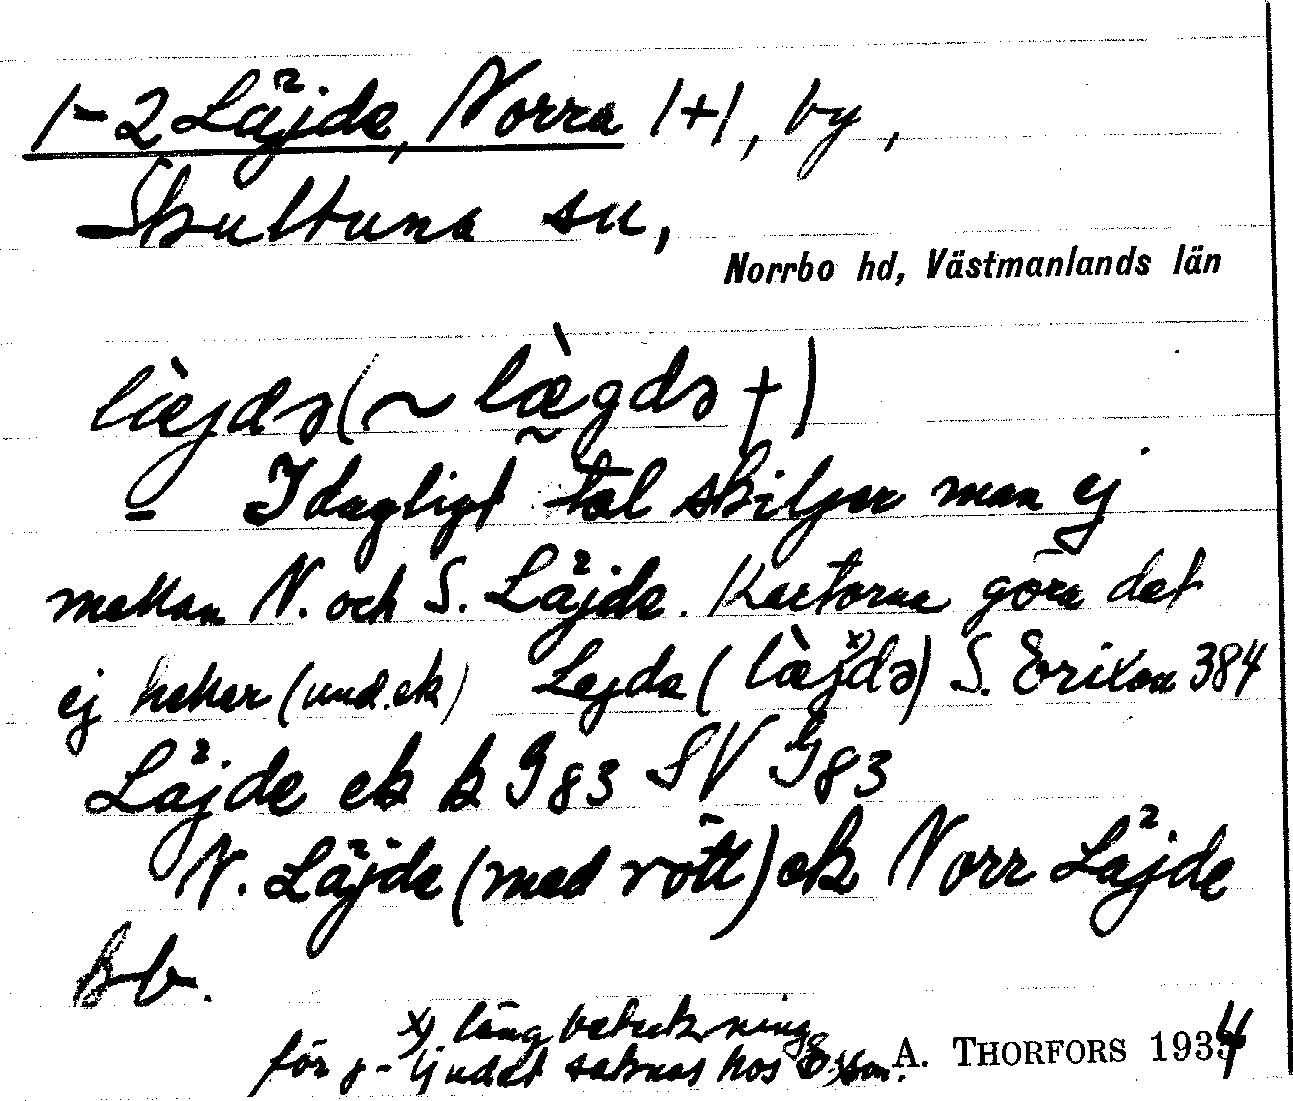 1-2 Läjde, Norra /+/, by,
Skultuna sn,
Norrbo hd, Västmanlands län
lὰjdə (~ læ̀gdə †)
– I dagligt tal skiljer man ej
mellan N. och S. Läjde. Kartorna göra det
ej heller (und. ek) Lejda (læ̀j x) də) S. Erixon 384
Läjde ek k G83 SV G83
N. Läjde (med rött) ek Norr Läjde
Bb.
x) lång beteckning
för j-ljudet saknas hos E;xon.
A. THORFORS 1934